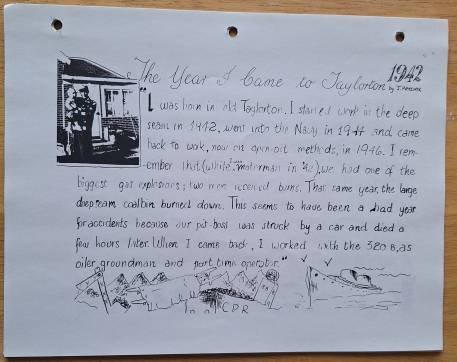 The Year I Came to Taylorton
1942
by T.
"I was born in old Taylorton. I started work in the deep
seam in 1942, went into the Navy in 1944 and came
back to wok, now on open-pit methods, in 1946. I rem-
ember that (while motorman in '42), we had one of the
biggest gas explosions; two men received burns. That same year, the large
deep seam coalbin burned down. This seems to have been a bad year
for accidents because our pit-boss was struck by a car and died a
few hours later. When I came back, I worked with the 320 B, as
oiler, groundman and part time operator."